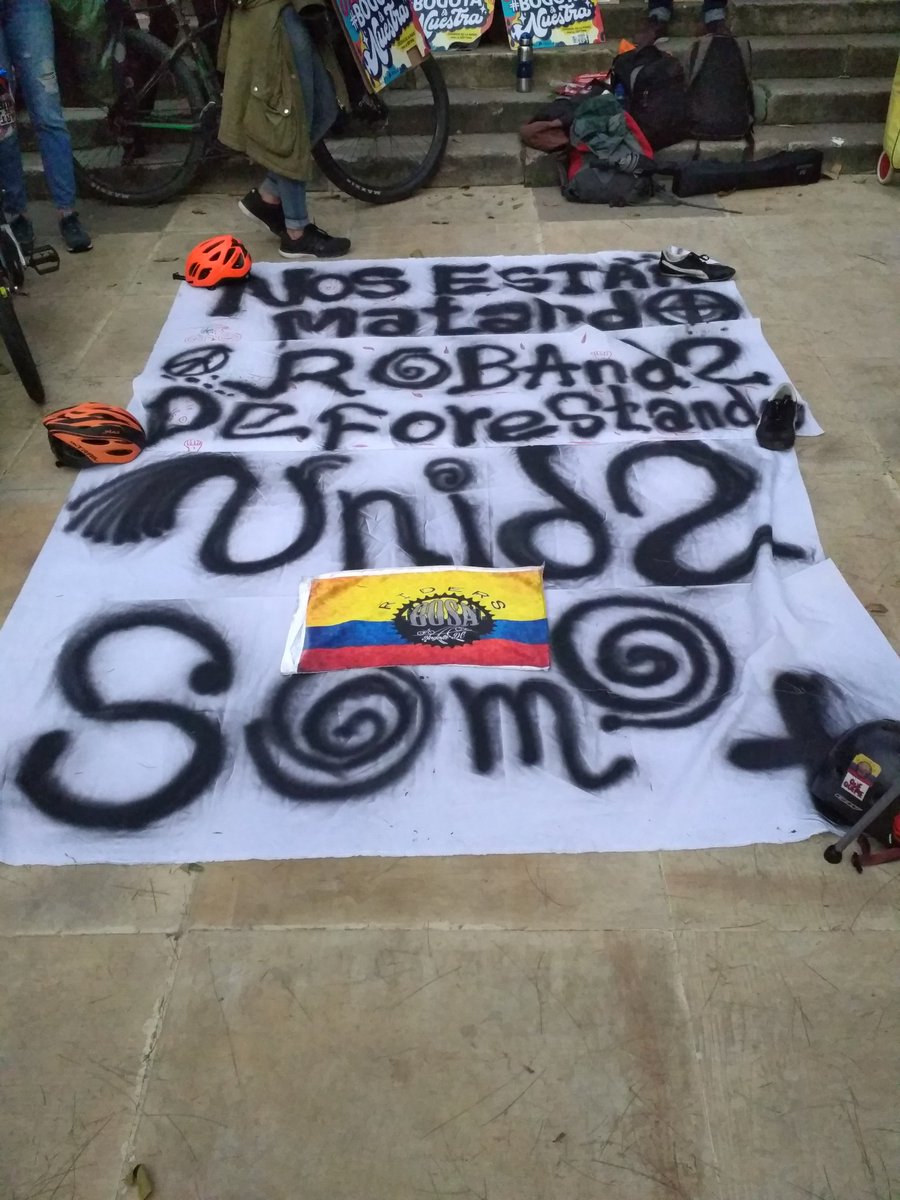 #BOGOTÁ
Nuestra
BOGOTÁ
Nuestra
#BOGOTÁ
Nuestra
NOS ESTÁN
matando
ROBAndo
DeForestando
Unidos
Somos
+
RIDERS
BOSA